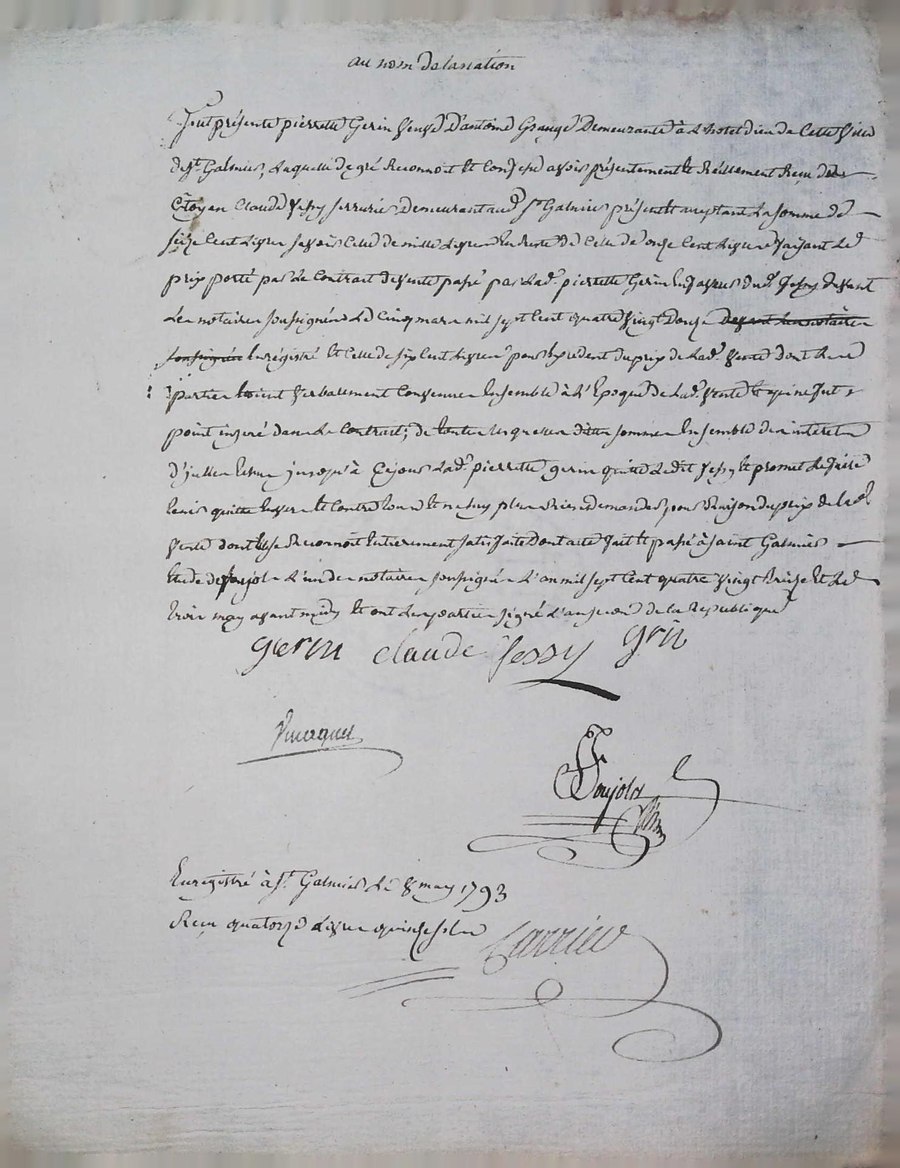 au nom de la nation
Fut présente pierrette Gerin veuve d'antoine Grange Demeurante à L'hotel dieu de Cette Ville
de St. Galmier, Laquelle de gré Reconnoit et Confesse avoir présentement et Réellement Reçu du
Citoyen Claude Fessy serrurier Demeurant aud. St Galmier présent et aceptant La somme de
seize Cent Livres savoir Celle de mille Livres En Reste de Celle de onze Cent Livres faisant Le
prix porté par Le Contrat de vente passé par Lad. pierrette Gerin En faveur dud. Fessy devant
Les notaires soussignés Le Cinq mars mil sept Cent quatre vingt Douze devant Les notaires
soussignés Enregistré et Celle de six Cent Livres pour Exedent du prix de Lad. vente dont Les
parties Etoient verballement Convenues Ensemble à L'Epoque de Lad. vente Et qui ne fut
point inseré dans Le Contrat; de toutes Lesquelles dittes sommes Ensemble des interets
d'icelles Echus jusqu'à Ce jour Lad. pierrette gerin quitte Ledit Fessy Et promet Le faire
tenir quitte Envers Et Contre tous Et ne luy plus Rien demander pour Raison du prix de Lad.
vente dont Elle se Reconnoit Entierement satisfaite dont acte fait Et passé à saint Galmier
Etude de Poujols L'un des notaires soussignés L'an mil sept Cent quatre vingt treize Et Le
trois may avant midy Et ont Les parties signé L'an second de la Republique
gerin claude fessy grin
Poujols
Enregistré à St. Galmier Le 8 may 1793
Reçu quatorze Livres quinze sols
Carrier